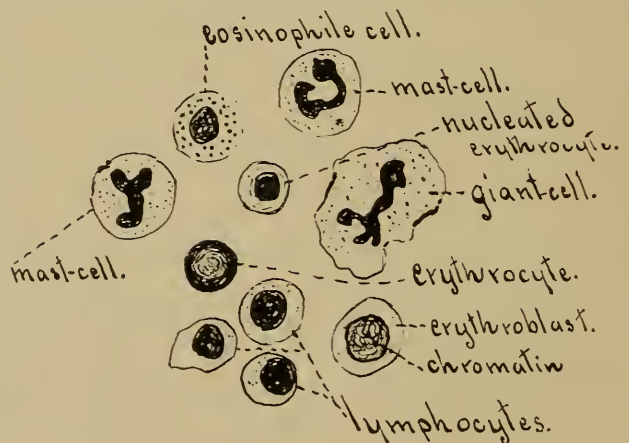 eosinophile cell.
mast-cell.
nucleated
erythrocyte.
giant-cell.
mast-cell.
erythrocyte.
erythroblast.
chromatin
lymphocytes.